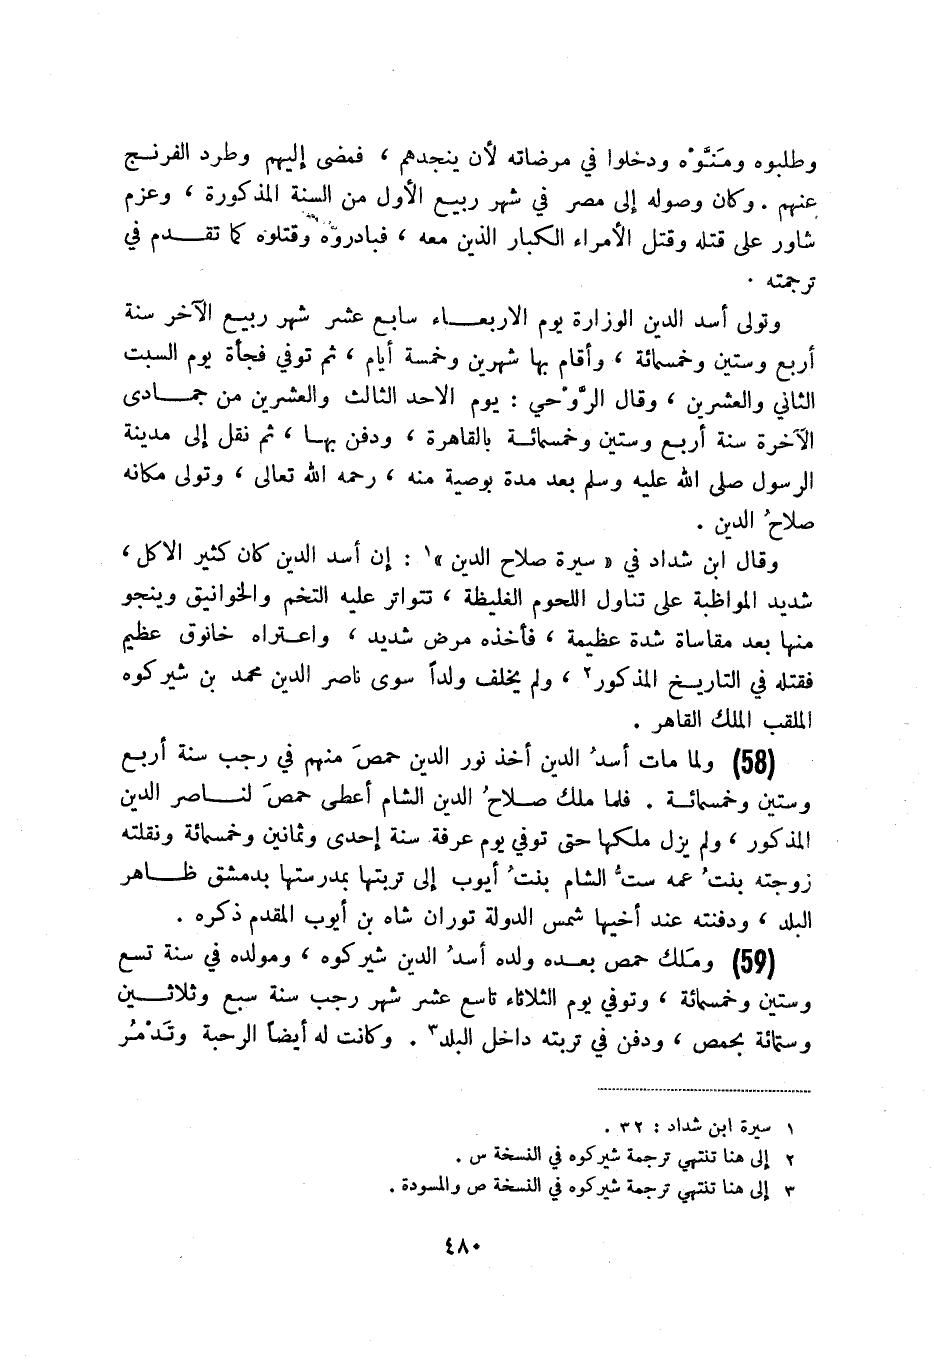 وطلبوه ومَنَّوْه ودخلوا في مرضاته لأن ينجدهم ، فمضى إليهم وطرد الفرنج
عنهم . وكان وصوله إلى مصر في شهر ربيع الأول من السنة المذكورة ، وعزم
شاور على قتله وقتل الأمراء الكبار الذين معه ، فبادروه وقتلوه كما تقدم في
ترجمته .
وتولى أسد الدين الوزارة يوم الاربعاء سابع عشر شهر ربيع الآخر سنة
أربع وستين وخمسمائة ، وأقام بها شهرين وخمسة أيام ، ثم توفي فجأة يوم السبت
الثاني والعشرين ، وقال الرَّوْحي : يوم الاحد الثالث والعشرين من جمادى
الآخرة سنة أربع وستين وخمسمائة بالقاهرة ، ودفن بها ، ثم نقل إلى مدينة
الرسول صلى الله عليه وسلم بعد مدة بوصية منه ، رحمه الله تعالى ، وتولى مكانه
صلاحُ الدين .
وقال ابن شداد في « سيرة صلاح الدين »١ : إن أسد الدين كان كثير الاكل ،
شديد المواظبة على تناول اللحوم الغليظة ، تتواتر عليه التخم والخوانيق وينجو
منها بعد مقاساة شدة عظيمة ، فأخذه مرض شديد ، واعتراه خانوق عظيم
فقتله في التاريخ المذكور٢ ، ولم يخلف ولداً سوى ناصر الدين محمد بن شيركوه
الملقب الملك القاهر .
(58) ولما مات أسدُ الدين أخذ نور الدين حمصَ منهم في رجب سنة أربع
وستين وخمسمائة . فلما ملك صلاحُ الدين الشام أعطى حمصَ لناصر الدين
المذكور ، ولم يزل ملكها حتى توفي يوم عرفة سنة إحدى وثمانين وخمسمائة ونقلته
زوجته بنتُ عمه ستُّ الشام بنتُ أيوب إلى تربتها بمدرستها بدمشق ظاهر
البلد ، ودفنته عند أخيها شمس الدولة توران شاه بن أيوب المقدم ذكره .
(59) وملك حمص بعده ولده أسدُ الدين شيركوه ، ومولده في سنة تسع
وستين وخمسمائة ، وتوفي يوم الثلاثاء تاسع عشر شهر رجب سنة سبع وثلاثين
وستمائة بحمص ، ودفن في تربته داخل البلد٣ . وكانت له أيضاً الرحبة وتَدْمُرُ
١ سيرة ابن شداد : ٣٢ .
٢ إلى هنا تنتهي ترجمة شيركوه في النسخة س .
٣ إلى هنا تنتهي ترجمة شيركوه في النسخة ص والمسودة .
٤٨٠